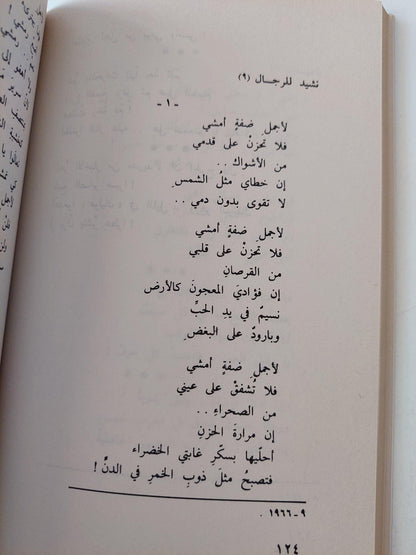 نشيد للرجال (٩)
-١-
لأجمل ضفةٍ أمشي
فلا تحزنْ على قدمي
من الأشواك ..
إن خطاي مثلُ الشمسِ
لا تقوى بدون دمي ..
لأجملِ ضفةٍ أمشي
فلا تحزنْ على قلبي
من القرصانِ
إن فؤاديَ المعجونَ كالأرض
نسيمٌ في يدِ الحبِّ
وبارودٌ على البغضِ
لأجملِ ضفةٍ أمشي
فلا تُشفقْ على عيني
من الصحراءِ ..
إن مرارةَ الحزنِ
أحلّيها بسكّرِ غابتي الخضراء
فتصبحُ مثلَ ذوبِ الخمرِ في الدنِّ !
٩-١٩٦٦ .
١٢٤